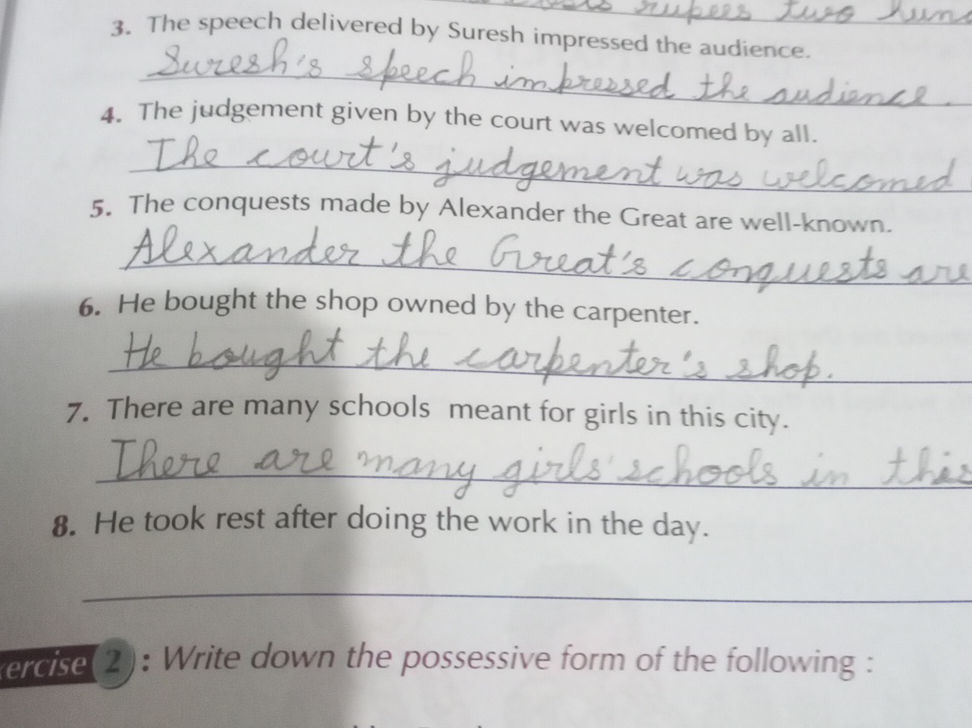 rupees two hun
3. The speech delivered by Suresh impressed the audience.
Suresh's speech impressed the audience.
4. The judgement given by the court was welcomed by all.
The court's judgement was welcomed
5. The conquests made by Alexander the Great are well-known.
Alexander the Great's conquests are
6. He bought the shop owned by the carpenter.
He bought the carpenter's shop.
7. There are many schools meant for girls in this city.
There are many girls' schools in this
8. He took rest after doing the work in the day.
ercise 2 : Write down the possessive form of the following :